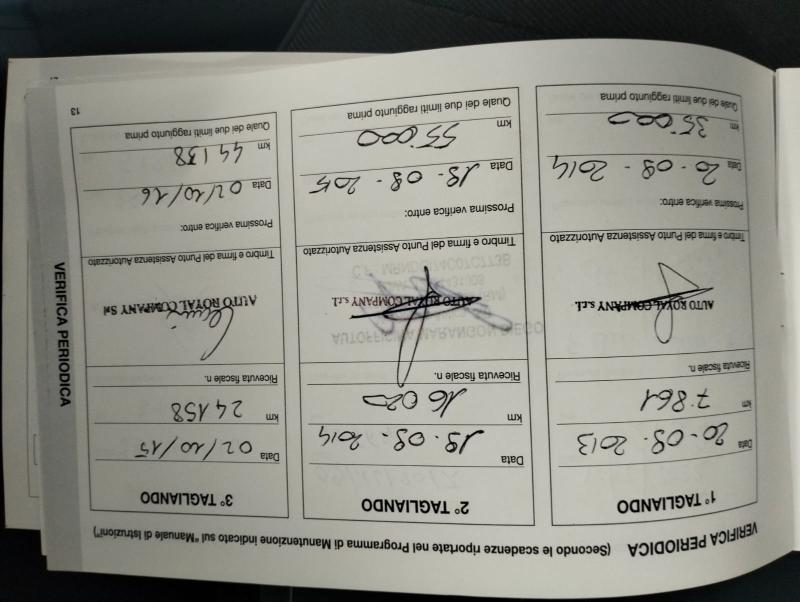 VERIFICA PERIODICA (Secondo le scadenze riportate nel Programma di Manutenzione indicato sul "Manuale di Istruzioni")
1° TAGLIANDO
Data 20-09-2013
km 7.861
Ricevuta fiscale n.
AUTO ROYAL COMPANY s.r.l.
Timbro e firma del Punto Assistenza Autorizzato
Prossima verifica entro:
Data 20-09-2014
km 35'000
Quale dei due limiti raggiunto prima
2° TAGLIANDO
Data 19-09-2014
km 16020
Ricevuta fiscale n.
AUTOFFICINA MARANGON DIEGO
AUTO ROYAL COMPANY s.r.l.
Timbro e firma del Punto Assistenza Autorizzato
Prossima verifica entro:
Data 19-09-2015
km 55'000
Quale dei due limiti raggiunto prima
3° TAGLIANDO
Data 02/10/15
km 24158
Ricevuta fiscale n.
AUTO ROYAL COMPANY Srl
Timbro e firma del Punto Assistenza Autorizzato
Prossima verifica entro:
Data 02/10/16
km 44138
Quale dei due limiti raggiunto prima
VERIFICA PERIODICA
13